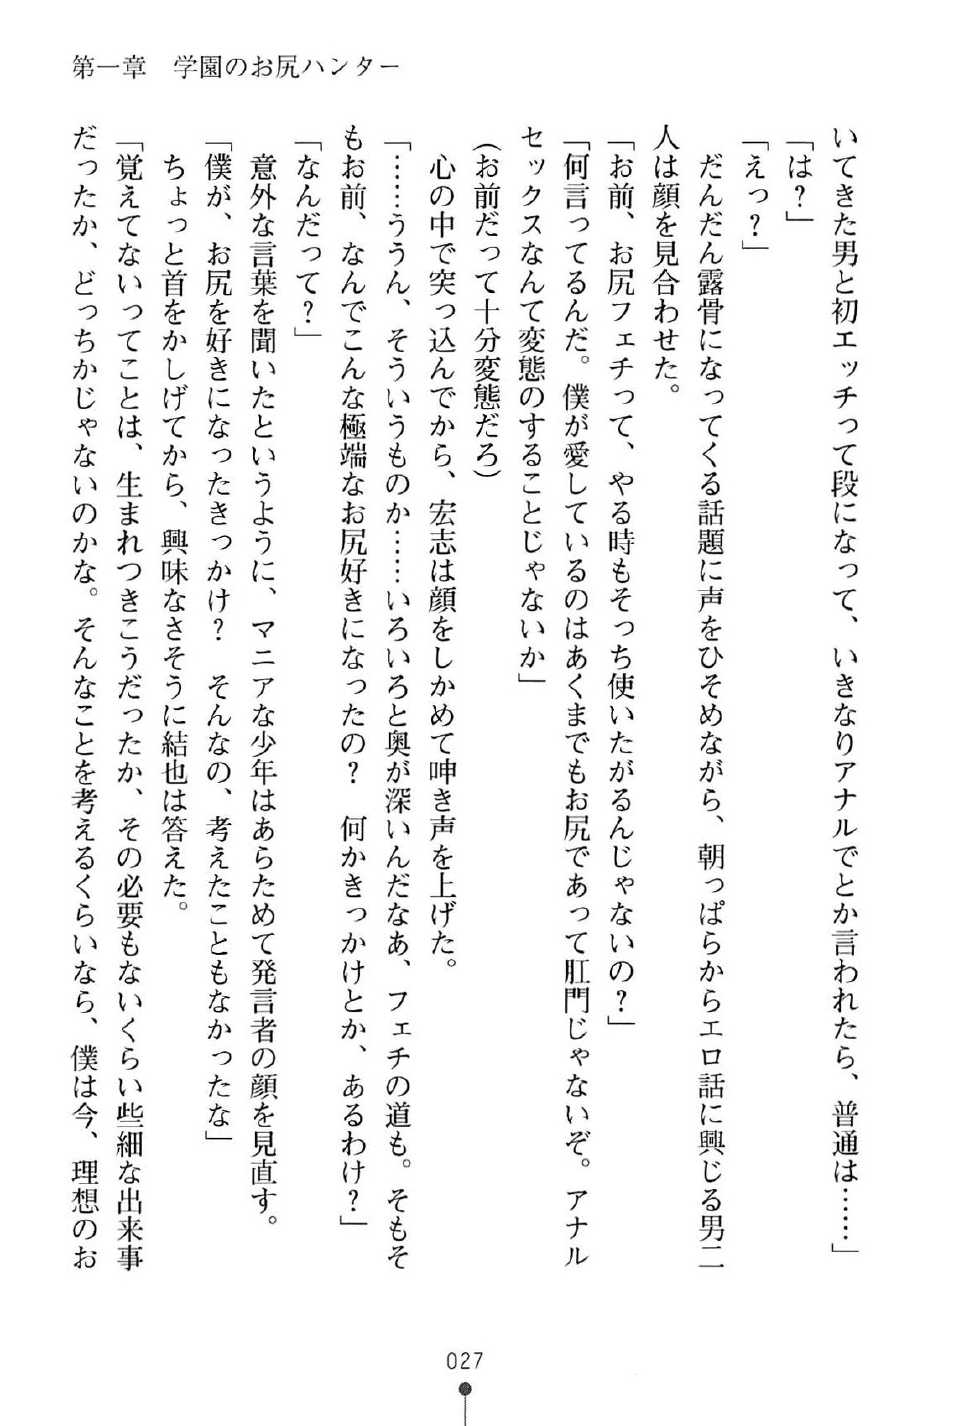 第一章　学園のお尻ハンター
いてきた男と初エッチって段になって、いきなりアナルでとか言われたら、普通は……」
「は？」
「えっ？」
　だんだん露骨になってくる話題に声をひそめながら、朝っぱらからエロ話に興じる男二
人は顔を見合わせた。
「お前、お尻フェチって、やる時もそっち使いたがるんじゃないの？」
「何言ってるんだ。僕が愛しているのはあくまでもお尻であって肛門じゃないぞ。アナル
セックスなんて変態のすることじゃないか」
（お前だって十分変態だろ）
　心の中で突っ込んでから、宏志は顔をしかめて呻き声を上げた。
「……ううん、そういうものか……いろいろと奥が深いんだなあ、フェチの道も。そもそ
もお前、なんでこんな極端なお尻好きになったの？　何かきっかけとか、あるわけ？」
「なんだって？」
　意外な言葉を聞いたというように、マニアな少年はあらためて発言者の顔を見直す。
「僕が、お尻を好きになったきっかけ？　そんなの、考えたこともなかったな」
　ちょっと首をかしげてから、興味なさそうに結也は答えた。
「覚えてないってことは、生まれつきこうだったか、その必要もないくらい些細な出来事
だったか、どっちかじゃないのかな。そんなことを考えるくらいなら、僕は今、理想のお
027